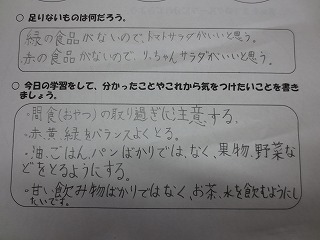 ○ 足りないものは何だろう。
緑の食品がないので、トマトサラダがいいと思う。
赤の食品がないので、りっちゃんサラダがいいと思う。
○ 今日の学習をして、分かったことやこれから気をつけたいことを書き
ましょう。
・間食(おやつ)の取り過ぎに注意する。
・赤、黄、緑をバランスよくとる。
・油、ごはん、パンばかりでは、なく、果物、野菜な
どをとるようにする。
・甘い飲み物ばかりではなく、お茶、水を飲むようにし
たいです。